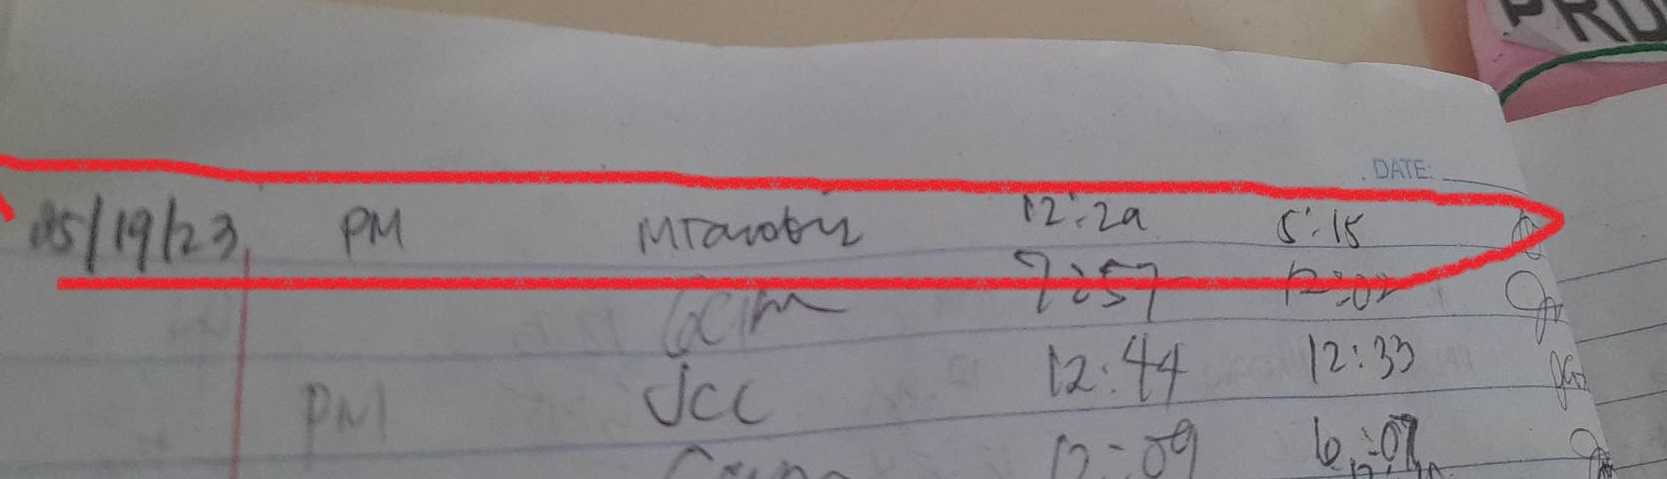 PRU
DATE:
05/19/23 PM 12:29 5:15
7:57 12:02
12:44 12:33
PM JCC
12:09 6:07